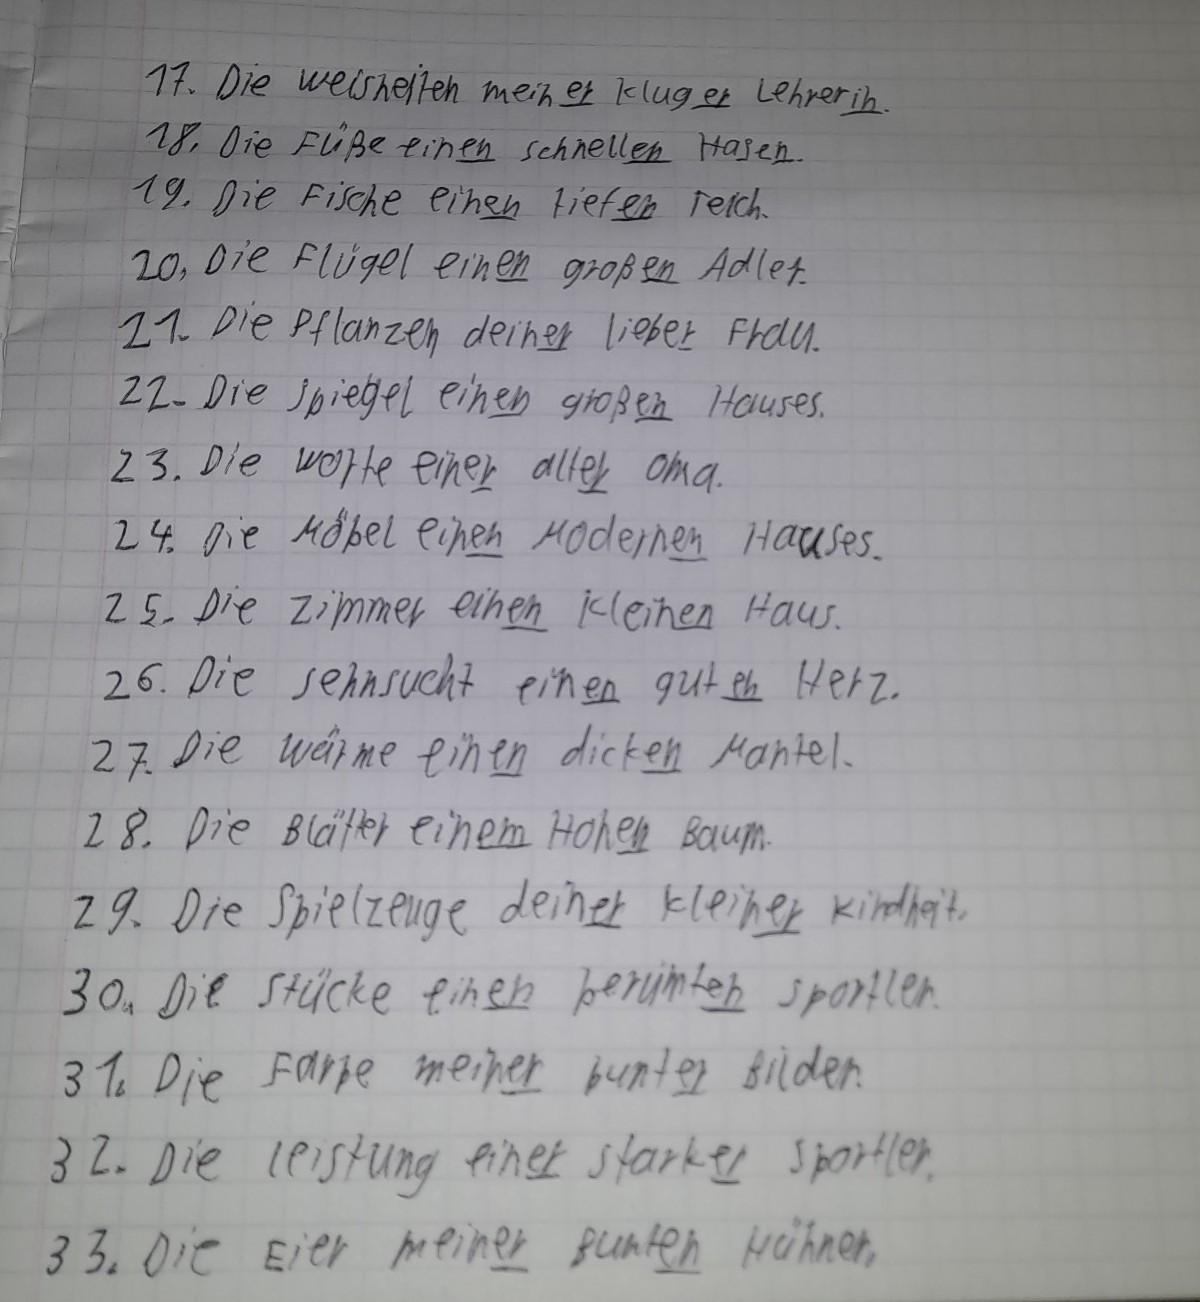 17. Die weisheiten meiner kluger Lehrerin.
18. Die Füße einen schnellen Hasen.
19. Die Fische einen tiefen Teich.
20. Die Flügel einen großen Adler.
21. Die Pflanzen deiner lieber Frau.
22. Die Spiegel einen großen Hauses.
23. Die worte einer alter oma.
24. Die Möbel einen Modernen Hauses.
25. Die Zimmer einen kleinen Haus.
26. Die sehnsucht einen guten Herz.
27. Die wärme einen dicken Mantel.
28. Die Blätter einem Hohen Baum.
29. Die Spielzeuge deiner kleiner kindheit.
30. Die Stücke einen berümten sportler.
31. Die Farbe meiner bunter Bilder.
32. Die leistung einer starker sportler.
33. Die Eier meiner Bunten Hühner.